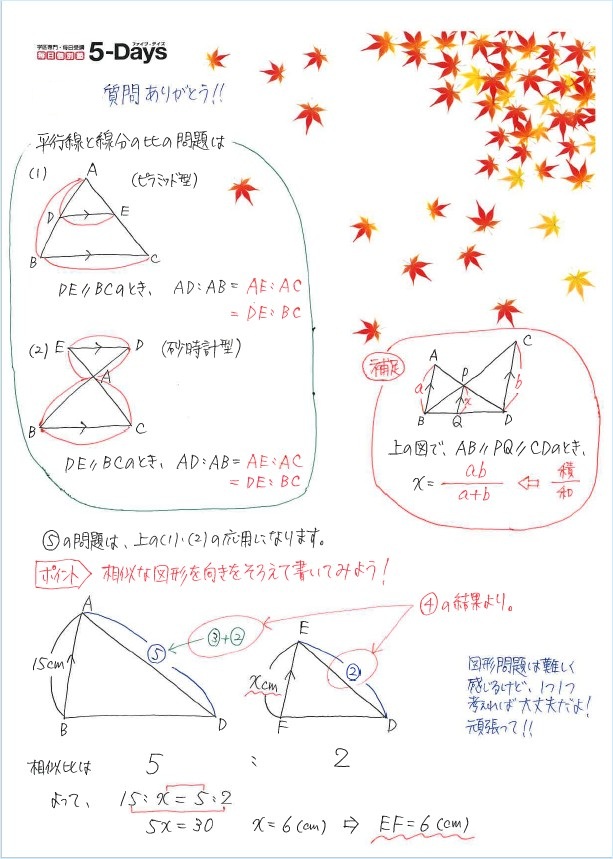 学習専門・毎日受講
毎日個別塾 5-Days
ファイブ・デイズ
質問ありがとう!!
平行線と線分の比の問題は
(1)
(ピラミッド型)
A
D
E
B
C
DE//BCのとき、 AD:AB = AE:AC
= DE:BC
(2)
(砂時計型)
E
D
A
B
C
DE//BCのとき、 AD:AB = AE:AC
= DE:BC
補足
A
C
P
a
x
b
B
Q
D
上の図で、AB//PQ//CDのとき、
x = ab/a+b ⇦ 積/和
⑤の問題は、上の(1)、(2)の応用になります。
ポイント 相似な図形を向きをそろえて書いてみよう!
④の結果より。
A
15cm
⑤
③+②
B
D
E
xcm
②
F
D
図形問題は難しく
感じるけど、1つ1つ
考えれば大丈夫だよ!
頑張って!!
相似比は 5 : 2
よって、 15:x = 5:2
5x = 30 x = 6(cm) ⇨ EF = 6(cm)